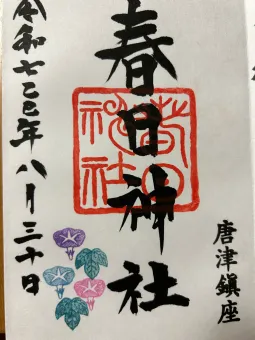 唐津鎮座
春日神社
春日
神社
令和七乙巳年八月三十日